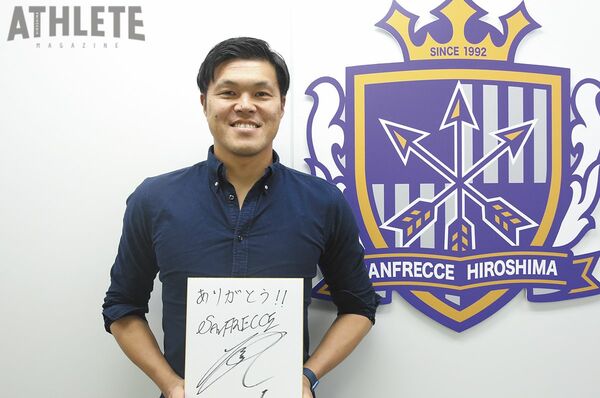 ATHLETE
MAGAZINE
SINCE 1992
SANFRECCE HIROSHIMA
ありがとう!!
SANFRECCE